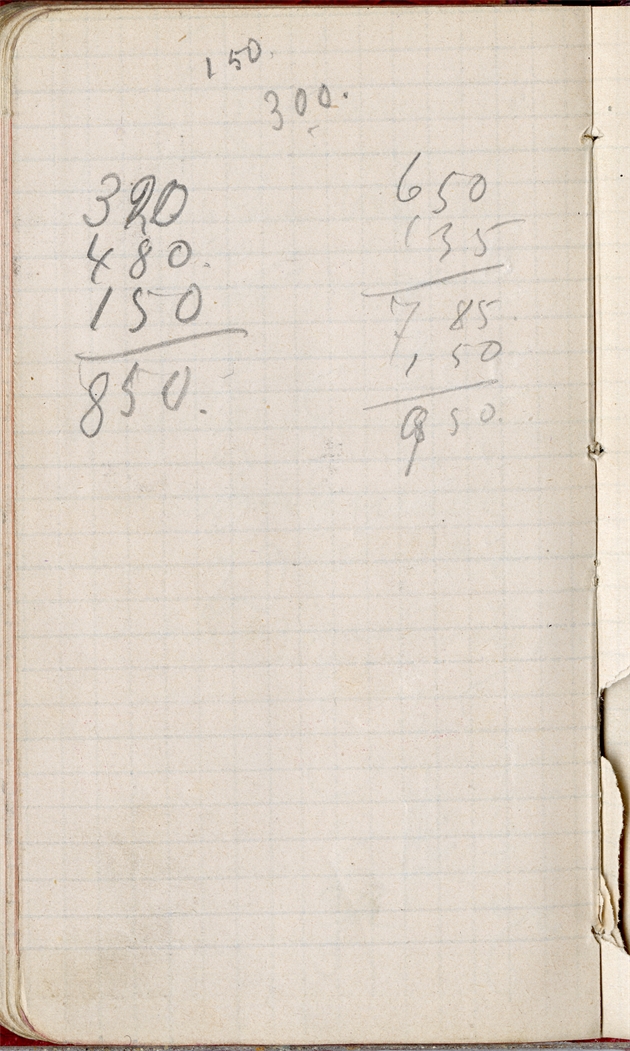 150.
300.
320
480.
150
850.
650
135
785.
150
950.